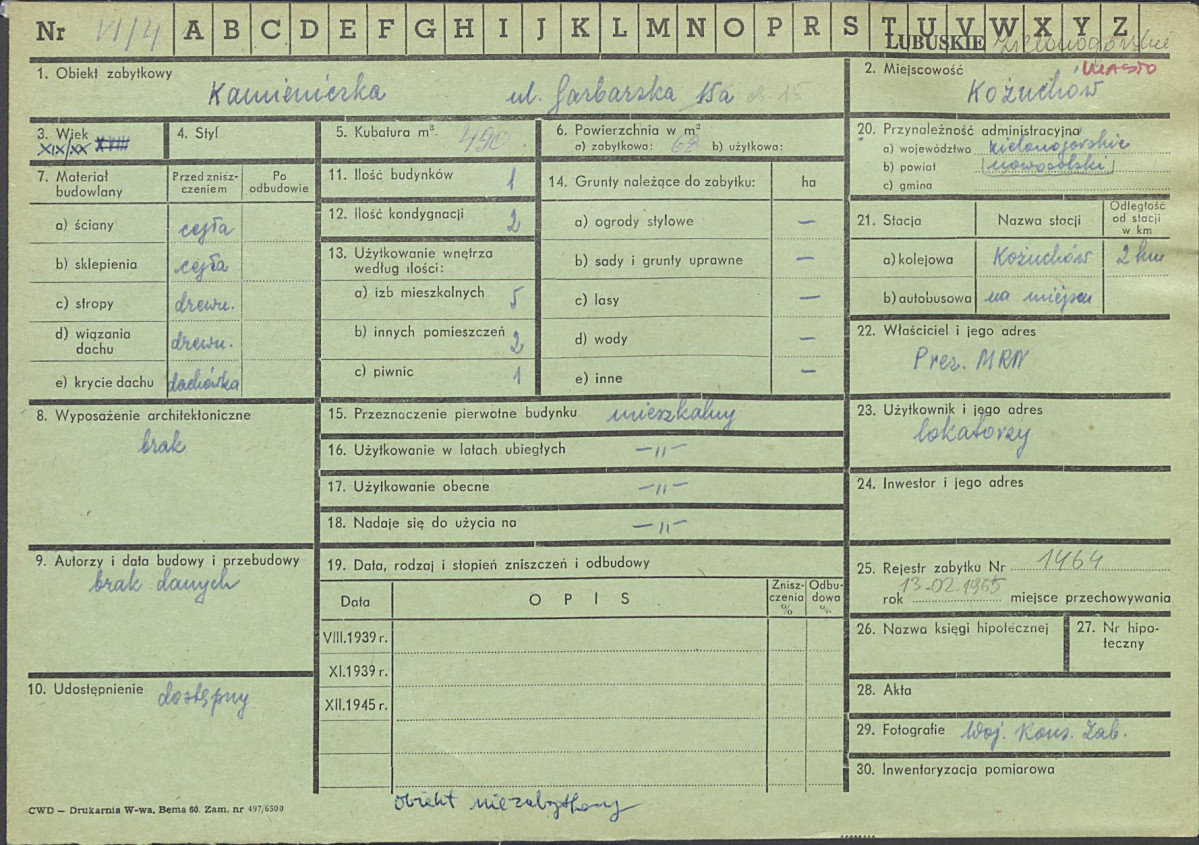 Nr VI/4 A B C D E F G H I J K L M N O P R S T U V W X Y Z
LUBUSKIE zielonogórskie
1. Obiekt zabytkowy
Kamieniczka ul. Garbarska 15a
2. Miejscowość MIASTO
Kożuchów
3. Wiek
XIX/XX XVIII
4. Styl
5. Kubatura m³. 490
6. Powierzchnia w m²
a) zabytkowa: 63 b) użytkowa:
20. Przynależność administracyjna
a) województwo zielonogórskie
b) powiat nowosolski
c) gmina
7. Materiał budowlany
Przed znisz-
czeniem
Po
odbudowie
a) ściany cegła
b) sklepienia cegła
c) stropy drewn.
d) wiązania
dachu drewn.
e) krycie dachu dachówka
11. Ilość budynków 1
12. Ilość kondygnacji 2
13. Użytkowanie wnętrza
według ilości:
a) izb mieszkalnych 5
b) innych pomieszczeń 2
c) piwnic 1
14. Grunty należące do zabytku: ha
a) ogrody stylowe —
b) sady i grunty uprawne —
c) lasy —
d) wody —
e) inne —
21. Stacja Nazwa stacji
Odległość
od stacji
w km
a) kolejowa Kożuchów 2 km
b) autobusowa na miejscu
22. Właściciel i jego adres
Prez. MRN
8. Wyposażenie architektoniczne
brak
15. Przeznaczenie pierwotne budynku mieszkalny
16. Użytkowanie w latach ubiegłych —〃—
17. Użytkowanie obecne —〃—
18. Nadaje się do użycia na —〃—
23. Użytkownik i jego adres
lokatorzy
24. Inwestor i jego adres
9. Autorzy i data budowy i przebudowy
brak danych
19. Data, rodzaj i stopień zniszczeń i odbudowy
Data O P I S
Znisz-
czenia
%
Odbu-
dowa
%
VIII.1939 r.
XI.1939 r.
XII.1945 r.
25. Rejestr zabytku Nr 1464
rok 13-02.1965 miejsce przechowywania
26. Nazwa księgi hipotecznej
27. Nr hipo-
teczny
10. Udostępnienie dostępny
28. Akta
29. Fotografie Woj. Kons. Zab.
30. Inwentaryzacja pomiarowa
obiekt niezabytkowy
CWD — Drukarnia W-wa, Bema 60. Zam. nr 497/6500